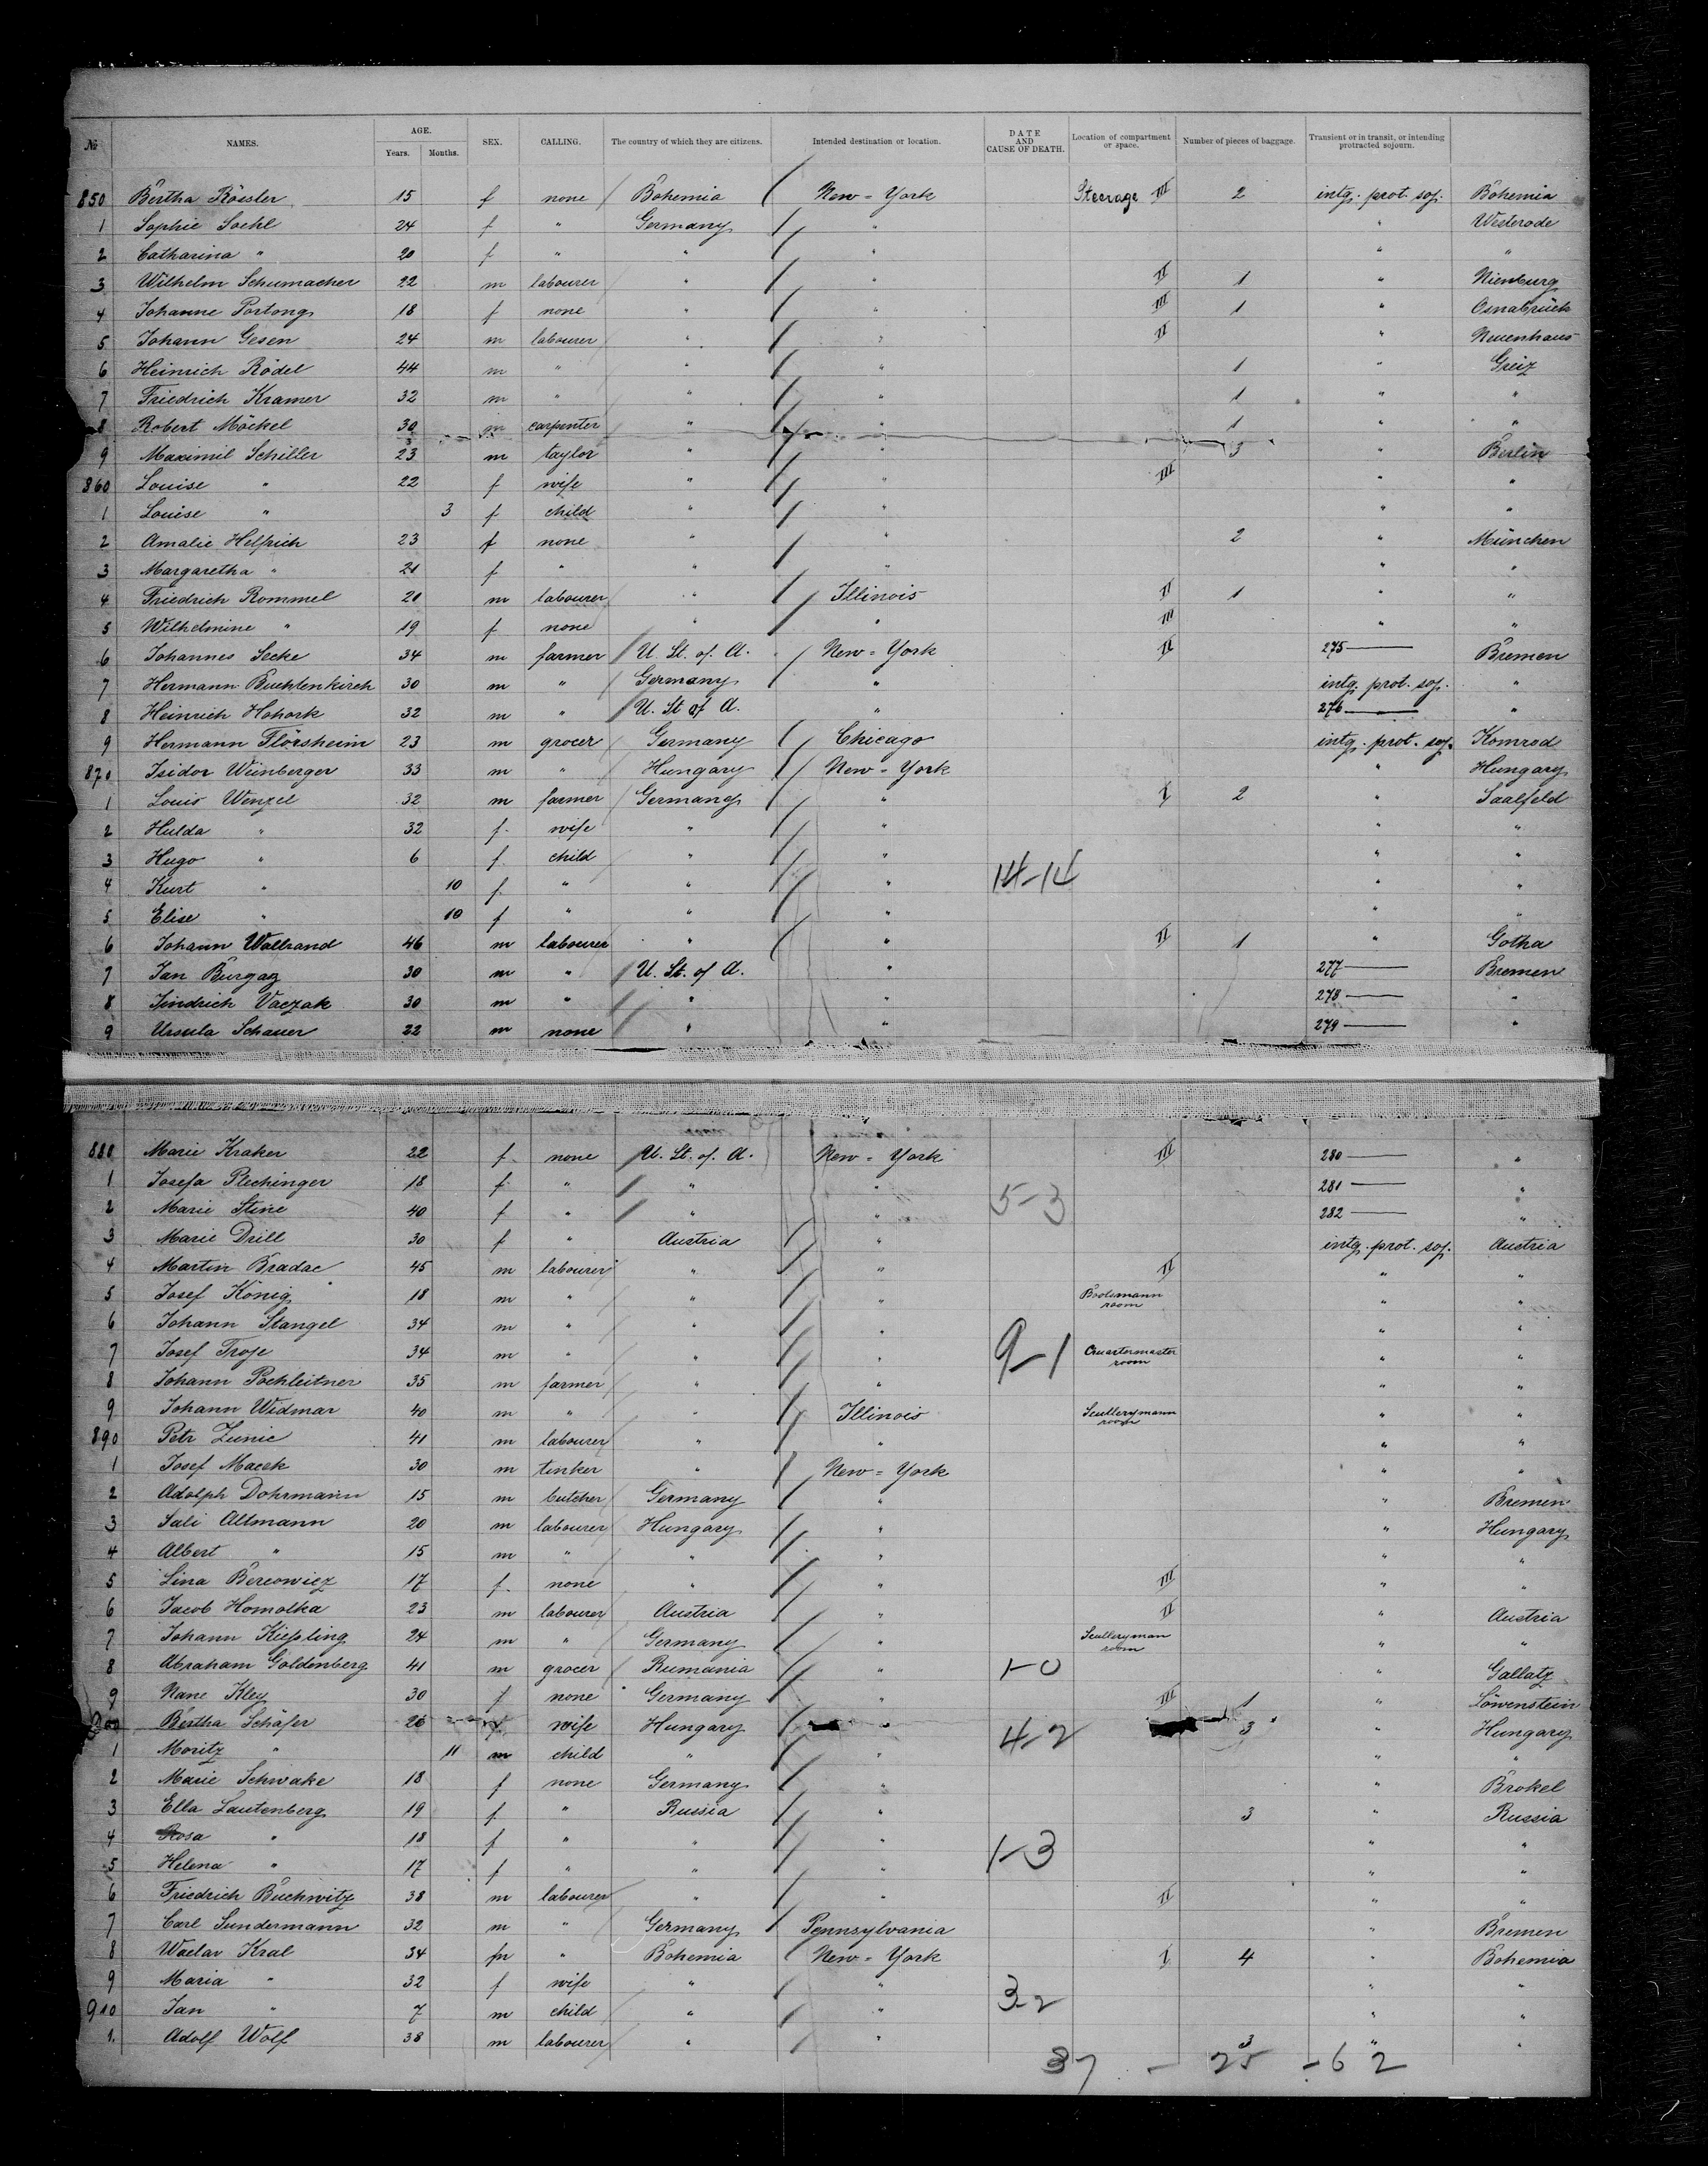 № NAMES. AGE. Years. Months. SEX. CALLING. The country of which they are citizens. Intended destination or location. DATE AND CAUSE OF DEATH. Location of compartment or space. Number of pieces of baggage. Transient or in transit, or intending protracted sojourn.
850 Bertha Rössler 15 f none Bohemia New-York Steerage III 2 intg. prot. soj. Bohemia
1 Sophie Soehl 24 f " Germany " " Westerode
2 Catharina " 20 f " " " " "
3 Wilhelm Schumacher 22 m labourer " " II 1 " Nienburg
4 Johanne Portong 18 f none " " III 1 " Osnabrück
5 Johann Gesen 24 m labourer " " II " Neuenhaus
6 Heinrich Rödel 44 m " " " 1 " Greiz
7 Friedrich Kramer 32 m " " " 1 " "
8 Robert Möckel 30 m carpenter " " 1 " "
9 Maximil Schiller 23 m taylor " " 3 " Berlin
860 Louise " 22 f wife " " III " "
1 Louise " 3 f child " " " "
2 Amalie Helfrich 23 f none " " 2 " München
3 Margaretha " 21 f " " " " "
4 Friedrich Rommel 20 m labourer " Illinois II 1 " "
5 Wilhelmine " 19 f none " " III " "
6 Johannes Secke 34 m farmer U. St. of. A. New-York II 275 — Bremen
7 Hermann Buchtenkirch 30 m " Germany " intg. prot. soj. "
8 Heinrich Hohork 32 m " U. St of A. " 276 — "
9 Hermann Flörsheim 23 m grocer Germany Chicago intg. prot. soj. Komrod
870 Isidor Weinberger 33 m " Hungary New-York " Hungary
1 Louis Wenzel 32 m farmer Germany " I 2 " Saalfeld
2 Hulda " 32 f. wife " " " "
3 Hugo " 6 f child " " " "
4 Kurt " 10 f. " " " 14-14 " "
5 Elise " 10 f " " " " "
6 Johann Wallrand 46 m labourer " " II 1 " Gotha
7 Jan Burgaz 30 m " U. St. of A. " 277 — Bremen
8 Jindrich Vaczak 30 m " " " 278 — "
9 Ursula Schauer 22 m none " " 279 — "
880 Marie Kraker 22 f none U. St. of. A. New-York III 280 — "
1 Josefa Plechinger 18 f " " " 5-3 281 — "
2 Marie Stine 40 f " " " 282 — "
3 Marie Drill 30 f " Austria " intg. prot. soj. Austria
4 Martin Bradac 45 m labourer " " II " "
5 Josef König 18 m " " " Bootsmann room " "
6 Johann Stangel 34 m " " " " "
7 Josef Troje 34 m " " " 9-1 Quartermaster room " "
8 Johann Pochleitner 35 m farmer " " " "
9 Johann Widmar 40 m " " Illinois Scullerymann room " "
890 Petr Zunic 41 m labourer " " " "
1 Josef Macek 30 m tinker " New-York " "
2 Adolph Dohrmann 15 m butcher Germany " " Bremen
3 Sali Altmann 20 m labourer Hungary " " Hungary
4 Albert " 15 m " " " " "
5 Lina Bercowicz 17 f. none " " III " "
6 Jacob Homolka 23 m labourer Austria " II " Austria
7 Johann Kießling 24 m " Germany " Sculleryman room " "
8 Abraham Goldenberg 41 m grocer Rumania " 1-0 " Gallatz
9 Nane Kley 30 f none Germany " III 1 " Löwenstein
900 Bertha Schäfer 26 f wife Hungary " 4-2 3 " Hungary
1 Moritz " 11 m child " " " "
2 Marie Schwake 18 f none Germany " " Brokel
3 Ella Lautenberg 19 f " Russia " 3 " Russia
4 Rosa " 18 f " " " " "
5 Helena " 17 f " " " 1-3 " "
6 Friedrich Buchwitz 38 m labourer " " II " "
7 Carl Sundermann 32 m " Germany Pennsylvania " Bremen
8 Waclav Kral 34 m " Bohemia New-York I 4 " Bohemia
9 Maria " 32 f wife " " " "
910 Jan " 7 m child " " 3-2 " "
1. Adolf Wolf 38 m labourer " " 3 " "
37 - 25 - 62